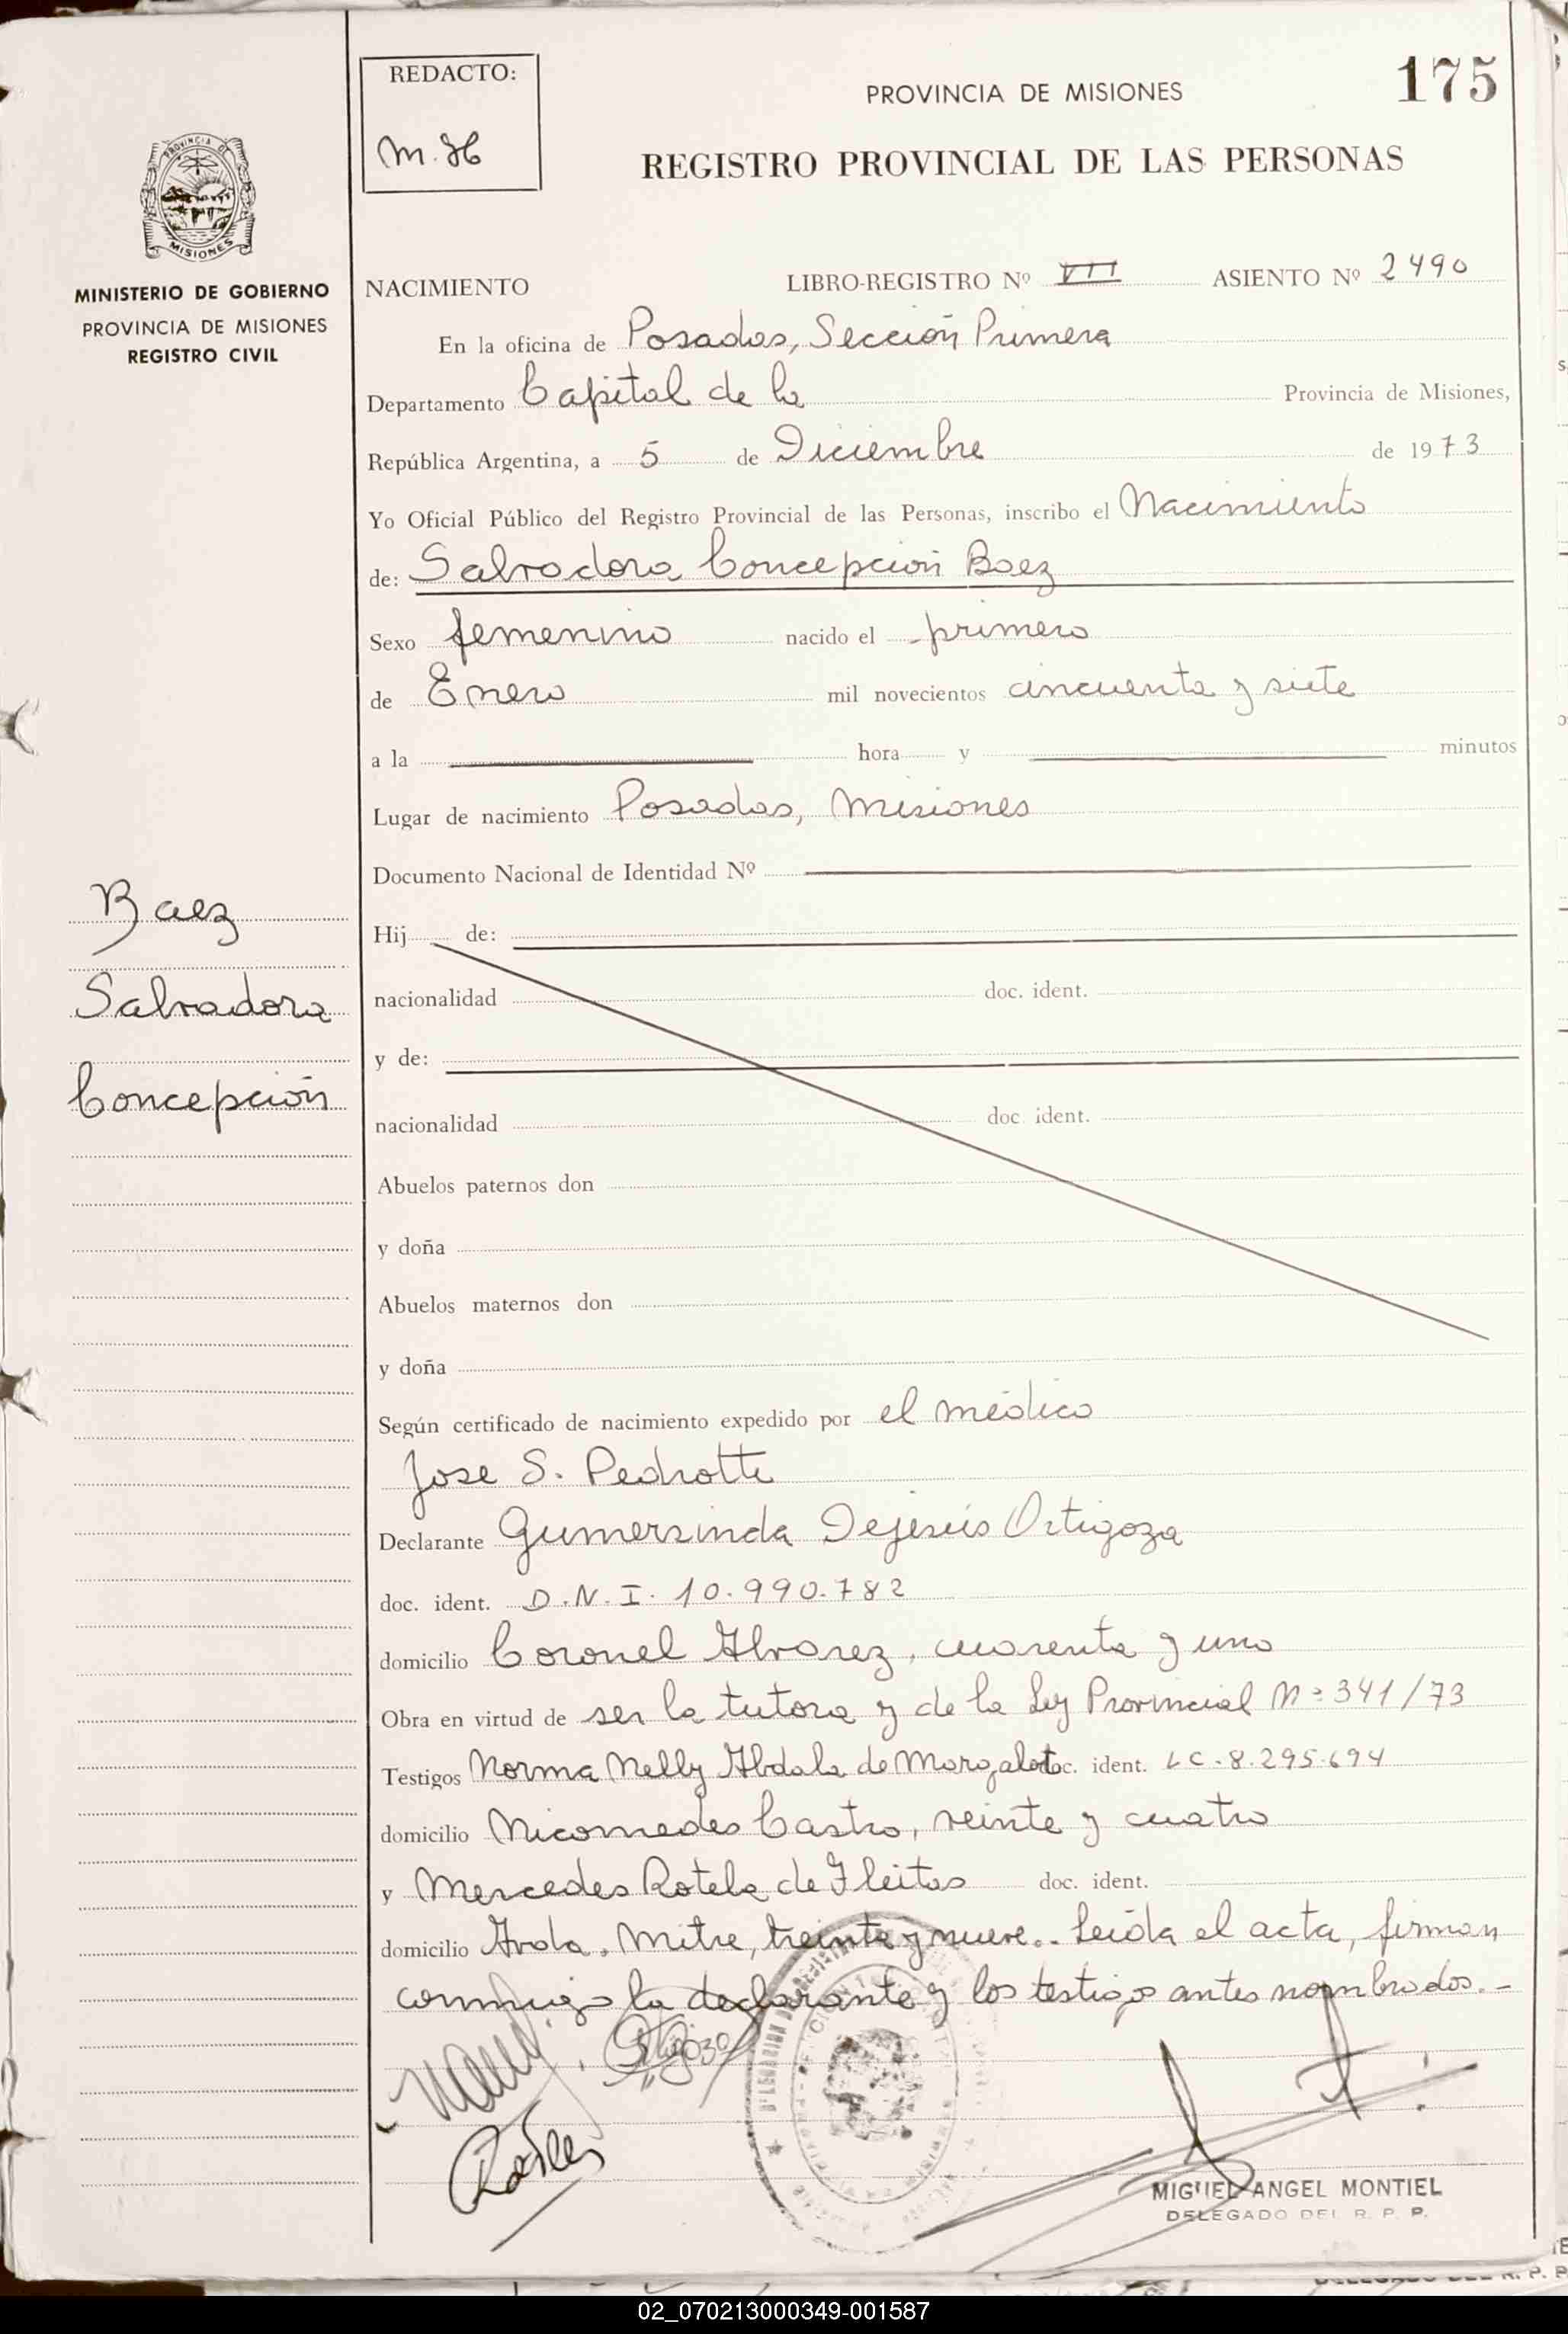 REDACTO:
M. H
PROVINCIA DE MISIONES
175
REGISTRO PROVINCIAL DE LAS PERSONAS
PROVINCIA DE
MISIONES
MINISTERIO DE GOBIERNO
PROVINCIA DE MISIONES
REGISTRO CIVIL
NACIMIENTO LIBRO-REGISTRO Nº VII ASIENTO Nº 2490
En la oficina de Posadas, Sección Primera
Departamento Capital de la Provincia de Misiones,
República Argentina, a 5 de Diciembre de 1973
Yo Oficial Público del Registro Provincial de las Personas, inscribo el Nacimiento
de: Salvadora Concepción Baez
Sexo femenino nacido el primero
de Enero mil novecientos cincuenta y siete
a la hora y minutos
Lugar de nacimiento Posadas, Misiones
Documento Nacional de Identidad Nº
Baez
Salvadora
Concepción
Hij de:
nacionalidad doc. ident.
y de:
nacionalidad doc. ident.
Abuelos paternos don
y doña
Abuelos maternos don
y doña
Según certificado de nacimiento expedido por el médico
Jose S. Pedrotti
Declarante Gumersinda Dejesús Ortigoza
doc. ident. D.N.I. 10.990.782
domicilio Coronel Alvarez, cuarenta y uno
Obra en virtud de ser la tutora y de la Ley Provincial Nº 341/73
Testigos Norma Nelly Abdala de Morgalot doc. ident. LC-8.295.694
domicilio Nicomedes Castro, veinte y cuatro
y Mercedes Rotela de Fleitas doc. ident.
domicilio Avda. Mitre, treinta y nueve.. Leída el acta, firman
conmigo la declarante y los testigos antes nombrados.-
MIGUEL ANGEL MONTIEL
DELEGADO DEL R. P. P.
02_070213000349-001587